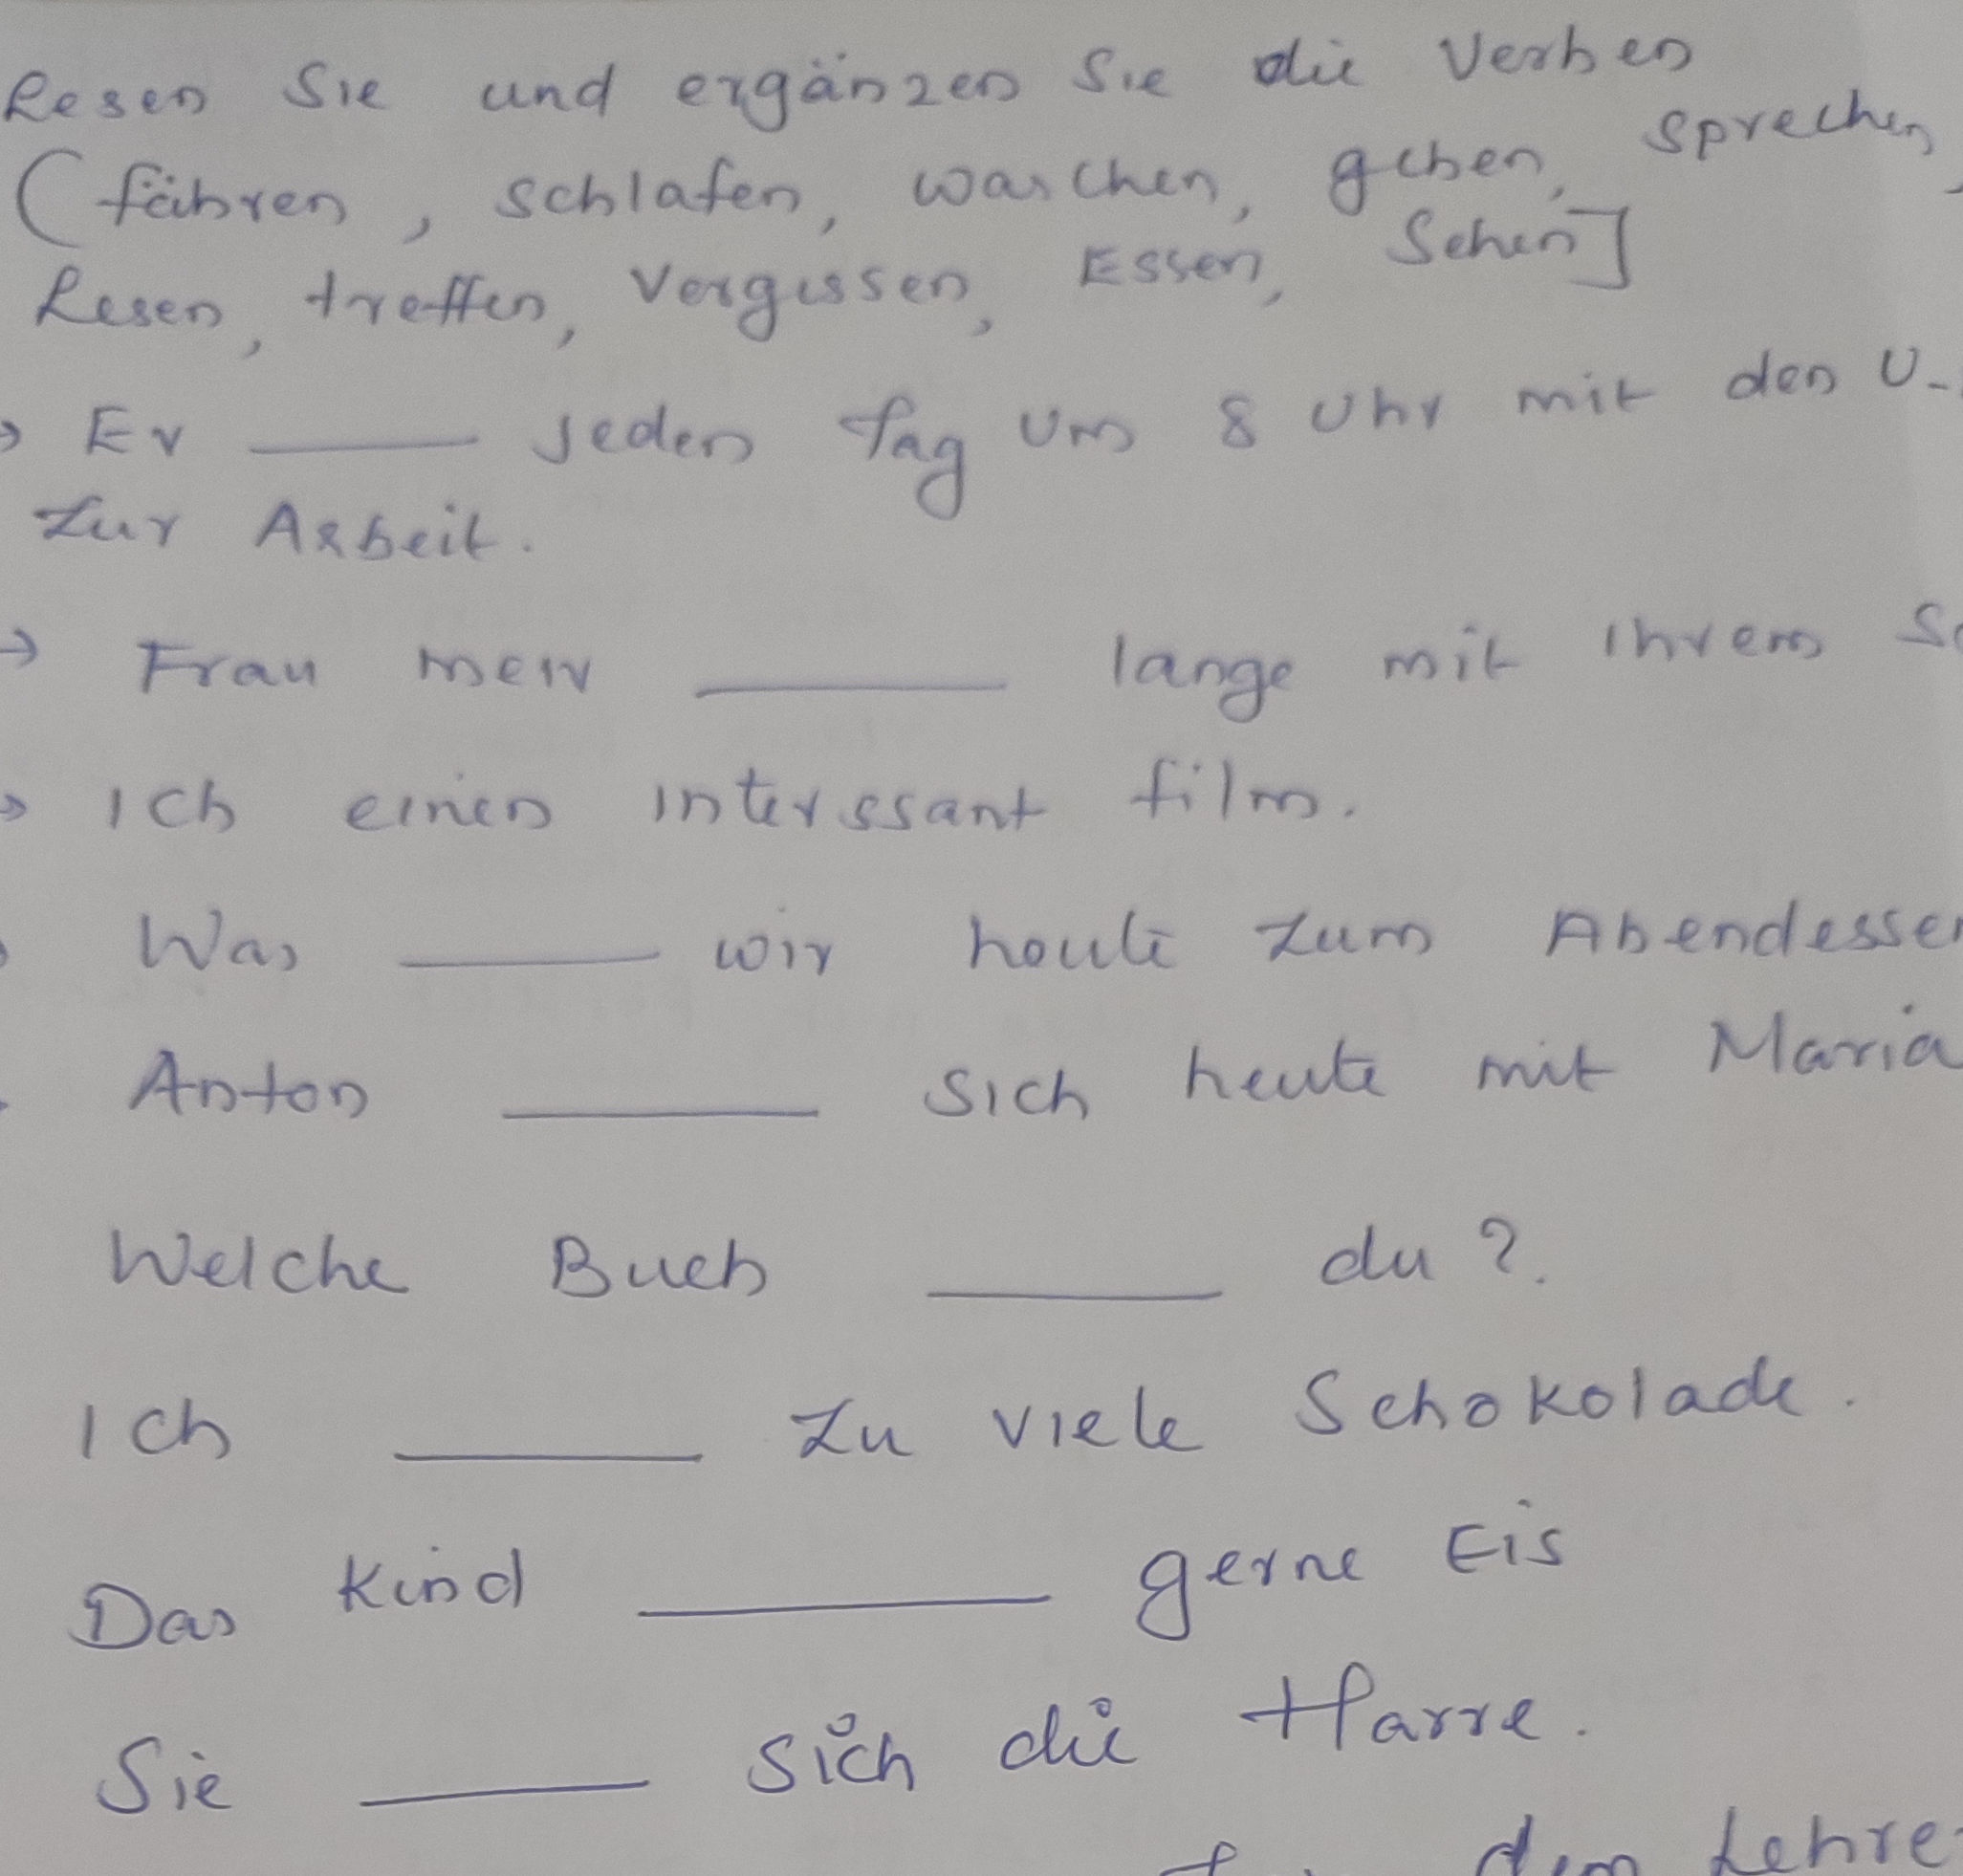 Lesen Sie und ergänzen Sie die Verben
(fähren, schlafen, waschen, geben, sprechen,
Lesen, treffen, vergessen, Essen, Sehen]
→ Er ____ jeden Tag um 8 Uhr mit den U-
zur Arbeit.
→ Frau meir ____ lange mit Ihrem
→ Ich einen interssant film.
Was ____ wir heute zum Abendessen
Anton ____ sich heute mit Maria
Welche Buch ____ du?.
Ich ____ zu viele Schokolade.
Das Kind ____ gerne Eis
Sie ____ sich die Harre.
dem Lehrer